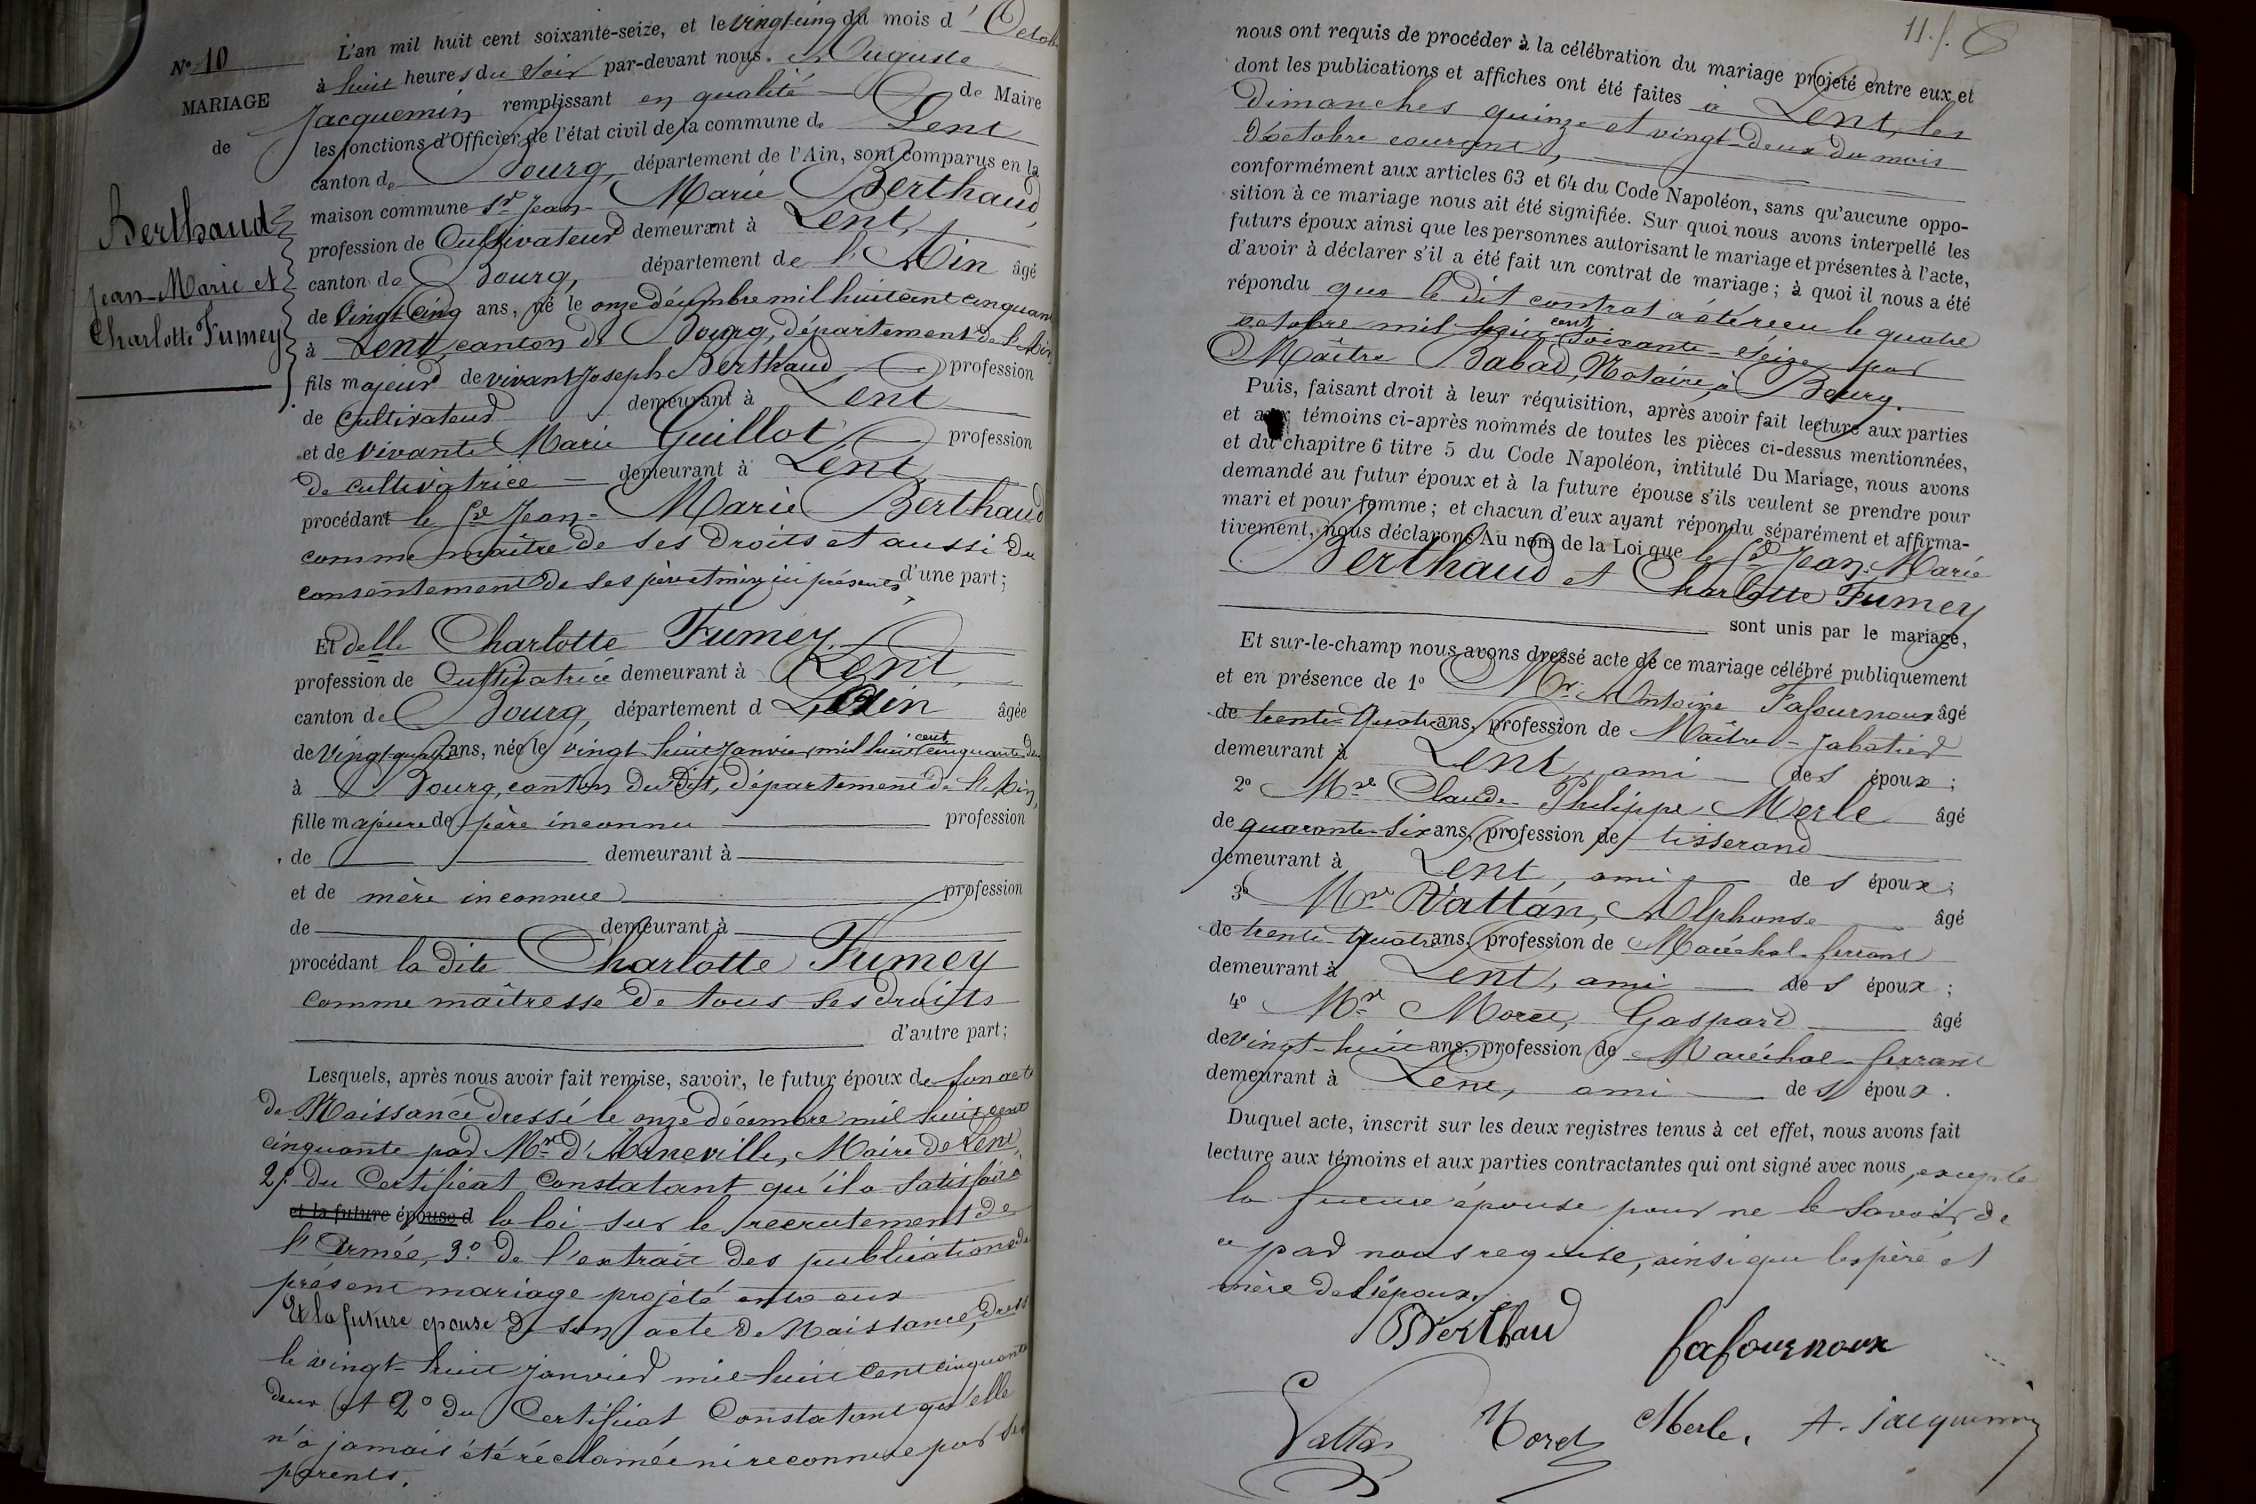 N° 10
MARIAGE
de
Berthaud
Jean-Marie et
Charlotte Fumey
L'an mil huit cent soixante-seize, et le vingt-cinq du mois d'Octobre
à huit heures du soir par-devant nous Auguste
Jacquemin remplissant en qualité de Maire
les fonctions d'Officier de l'état civil de la commune de Lent
canton de Bourg, département de l'Ain, sont comparus en la
maison commune Sr Jean-Marie Berthaud,
profession de Cultivateur demeurant à Lent,
canton de Bourg, département de l'Ain âgé
de vingt cinq ans, né le onze décembre mil huit cent cinquante
à Lent, canton de Bourg, département de l'Ain
fils majeur de vivant Joseph Berthaud profession
de cultivateur demeurant à Lent
et de vivante Marie Guillot profession
de cultivatrice demeurant à Lent,
procédant le Sr Jean-Marie Berthaud
comme maître de ses droits et aussi du
consentement de ses père et mère ici présents, d'une part;
Et delle Charlotte Fumey
profession de Cultivatrice demeurant à Lent,
canton de Bourg, département d L'Ain âgée
de vingt quatre ans, née le vingt huit Janvier mil huit cent cinquante deux
à Bourg, canton du dit, département de l'Ain,
fille majeure de père inconnu profession
de demeurant à
et de mère inconnue profession
de demeurant à
procédant la dite Charlotte Fumey
comme maîtresse de tous ses droits
d'autre part;
Lesquels, après nous avoir fait remise, savoir, le futur époux de son acte
de Naissance dressé le onze décembre mil huit cent
cinquante par Mr d'Arneville, Maire de Lent,
2° du Certificat Constatant qu'il a satisfait à
et la future épouse d la loi sur le recrutement de
l'Armée, 3° de l'extrait des publications du
présent mariage projeté entre eux
Et la future epouse de son acte de Naissance, dressé
le vingt-huit janvier mil huit cent cinquante
deux et 2° du Certificat Constatant qu'elle
n'a jamais été réclamée ni reconnue par ses
parents.
11. f.
nous ont requis de procéder à la célébration du mariage projeté entre eux et
dont les publications et affiches ont été faites à Lent, les
dimanches quinze et vingt-deux du mois
d'octobre courant,
conformément aux articles 63 et 64 du Code Napoléon, sans qu'aucune oppo-
sition à ce mariage nous ait été signifiée. Sur quoi nous avons interpellé les
futurs époux ainsi que les personnes autorisant le mariage et présentes à l'acte,
d'avoir à déclarer s'il a été fait un contrat de mariage; à quoi il nous a été
répondu que le dit contrat a été reçu le quatre
octobre mil huit cent soixante-seize par
Maître Babad, Notaire à Bourg.
Puis, faisant droit à leur réquisition, après avoir fait lecture aux parties
et aux témoins ci-après nommés de toutes les pièces ci-dessus mentionnées,
et du chapitre 6 titre 5 du Code Napoléon, intitulé Du Mariage, nous avons
demandé au futur époux et à la future épouse s'ils veulent se prendre pour
mari et pour femme; et chacun d'eux ayant répondu séparément et affirma-
tivement, nous déclarons Au nom de la Loi que le Sr Jean-Marie
Berthaud et Charlotte Fumey
sont unis par le mariage,
Et sur-le-champ nous avons dressé acte de ce mariage célébré publiquement
et en présence de 1° Mr Antoine Fafournoux âgé
de trente-quatre ans, profession de Maître-Sabotier
demeurant à Lent, ami des époux;
2° Mr Claude-Philippe Merle âgé
de quarante six ans, profession de tisserand
demeurant à Lent, ami des époux;
3° Mr Vattan, Alphonse âgé
de trente-quatre ans, profession de Maréchal-ferrant
demeurant à Lent, ami des époux;
4° Mr Morel, Gaspard âgé
de vingt-huit ans, profession de Maréchal-ferrant
demeurant à Lent, ami des époux.
Duquel acte, inscrit sur les deux registres tenus à cet effet, nous avons fait
lecture aux témoins et aux parties contractantes qui ont signé avec nous, excepté
la future épouse pour ne le savoir de
ce par nous requise, ainsi que les père et
mère de l'époux.
Berthaud
fafournoux
Vattan
Morel
Merle.
A. Jacquemin